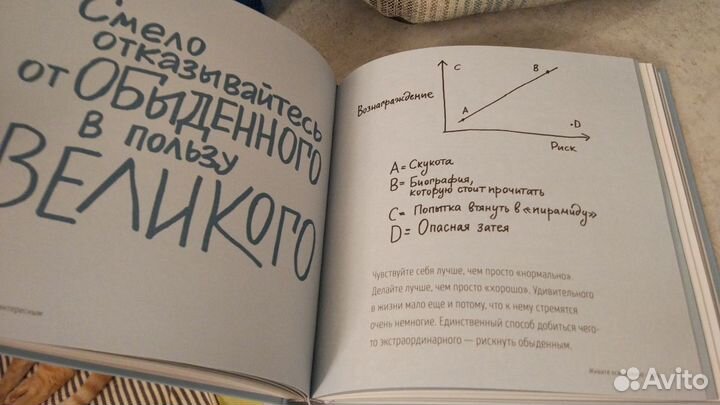 Смело
отказывайтесь
от ОБЫДЕННОГО
в пользу
ВЕЛИКОГО
интересным
C
B
Вознаграждение
A
D
Риск
A = Скукота
B = Биография,
которую стоит прочитать
C = Попытка втянуть в «пирамиду»
D = Опасная затея
Чувствуйте себя лучше, чем просто «нормально».
Делайте лучше, чем просто «хорошо». Удивительного
в жизни мало еще и потому, что к нему стремятся
очень немногие. Единственный способ добиться чего-
то экстраординарного — рискнуть обыденным.
Живите
Avito